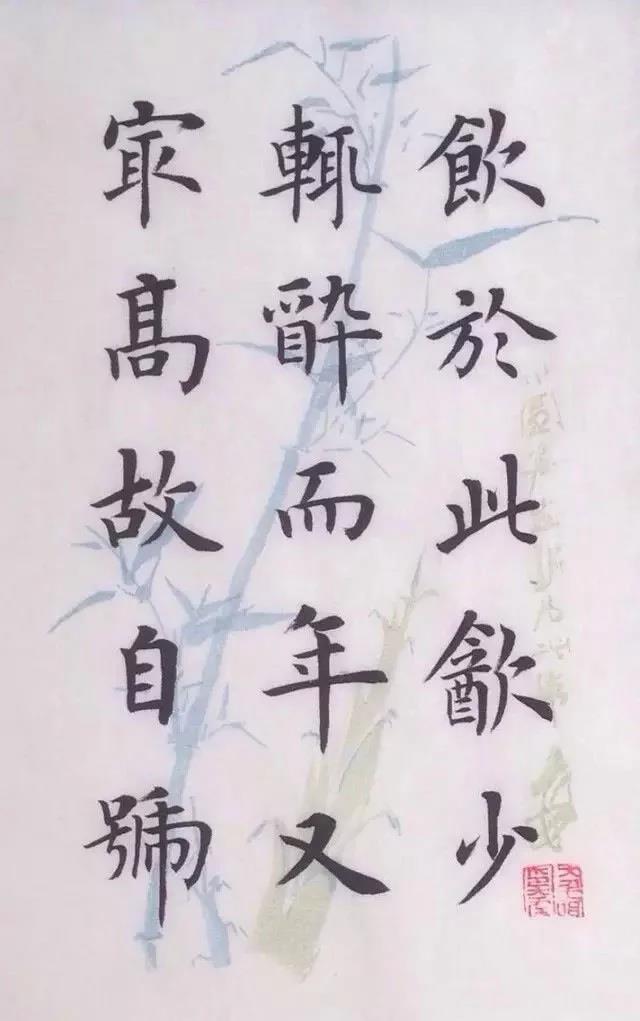 飲於此㱃少
輒醉而年又
㝡髙故自號